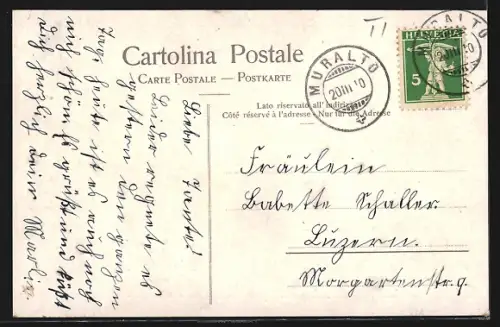 Cartolina Postale
CARTE POSTALE — POSTKARTE
Lato riservato all'indirizzo
Côté réservé à l'adresse - Nur für die Adresse
HELVETIA
5
MURALTO
20 III 10
MURALTO
20 III 10
TI
Fräulein
Babette Schaller
Luzern.
Morgartenstr. 9.
Liebe Tante!
Leider regnete es
gestern den ganzen
Tag, heute ist es auch noch
schön. Es grüßt und küßt
dich herzlich deine Marly.